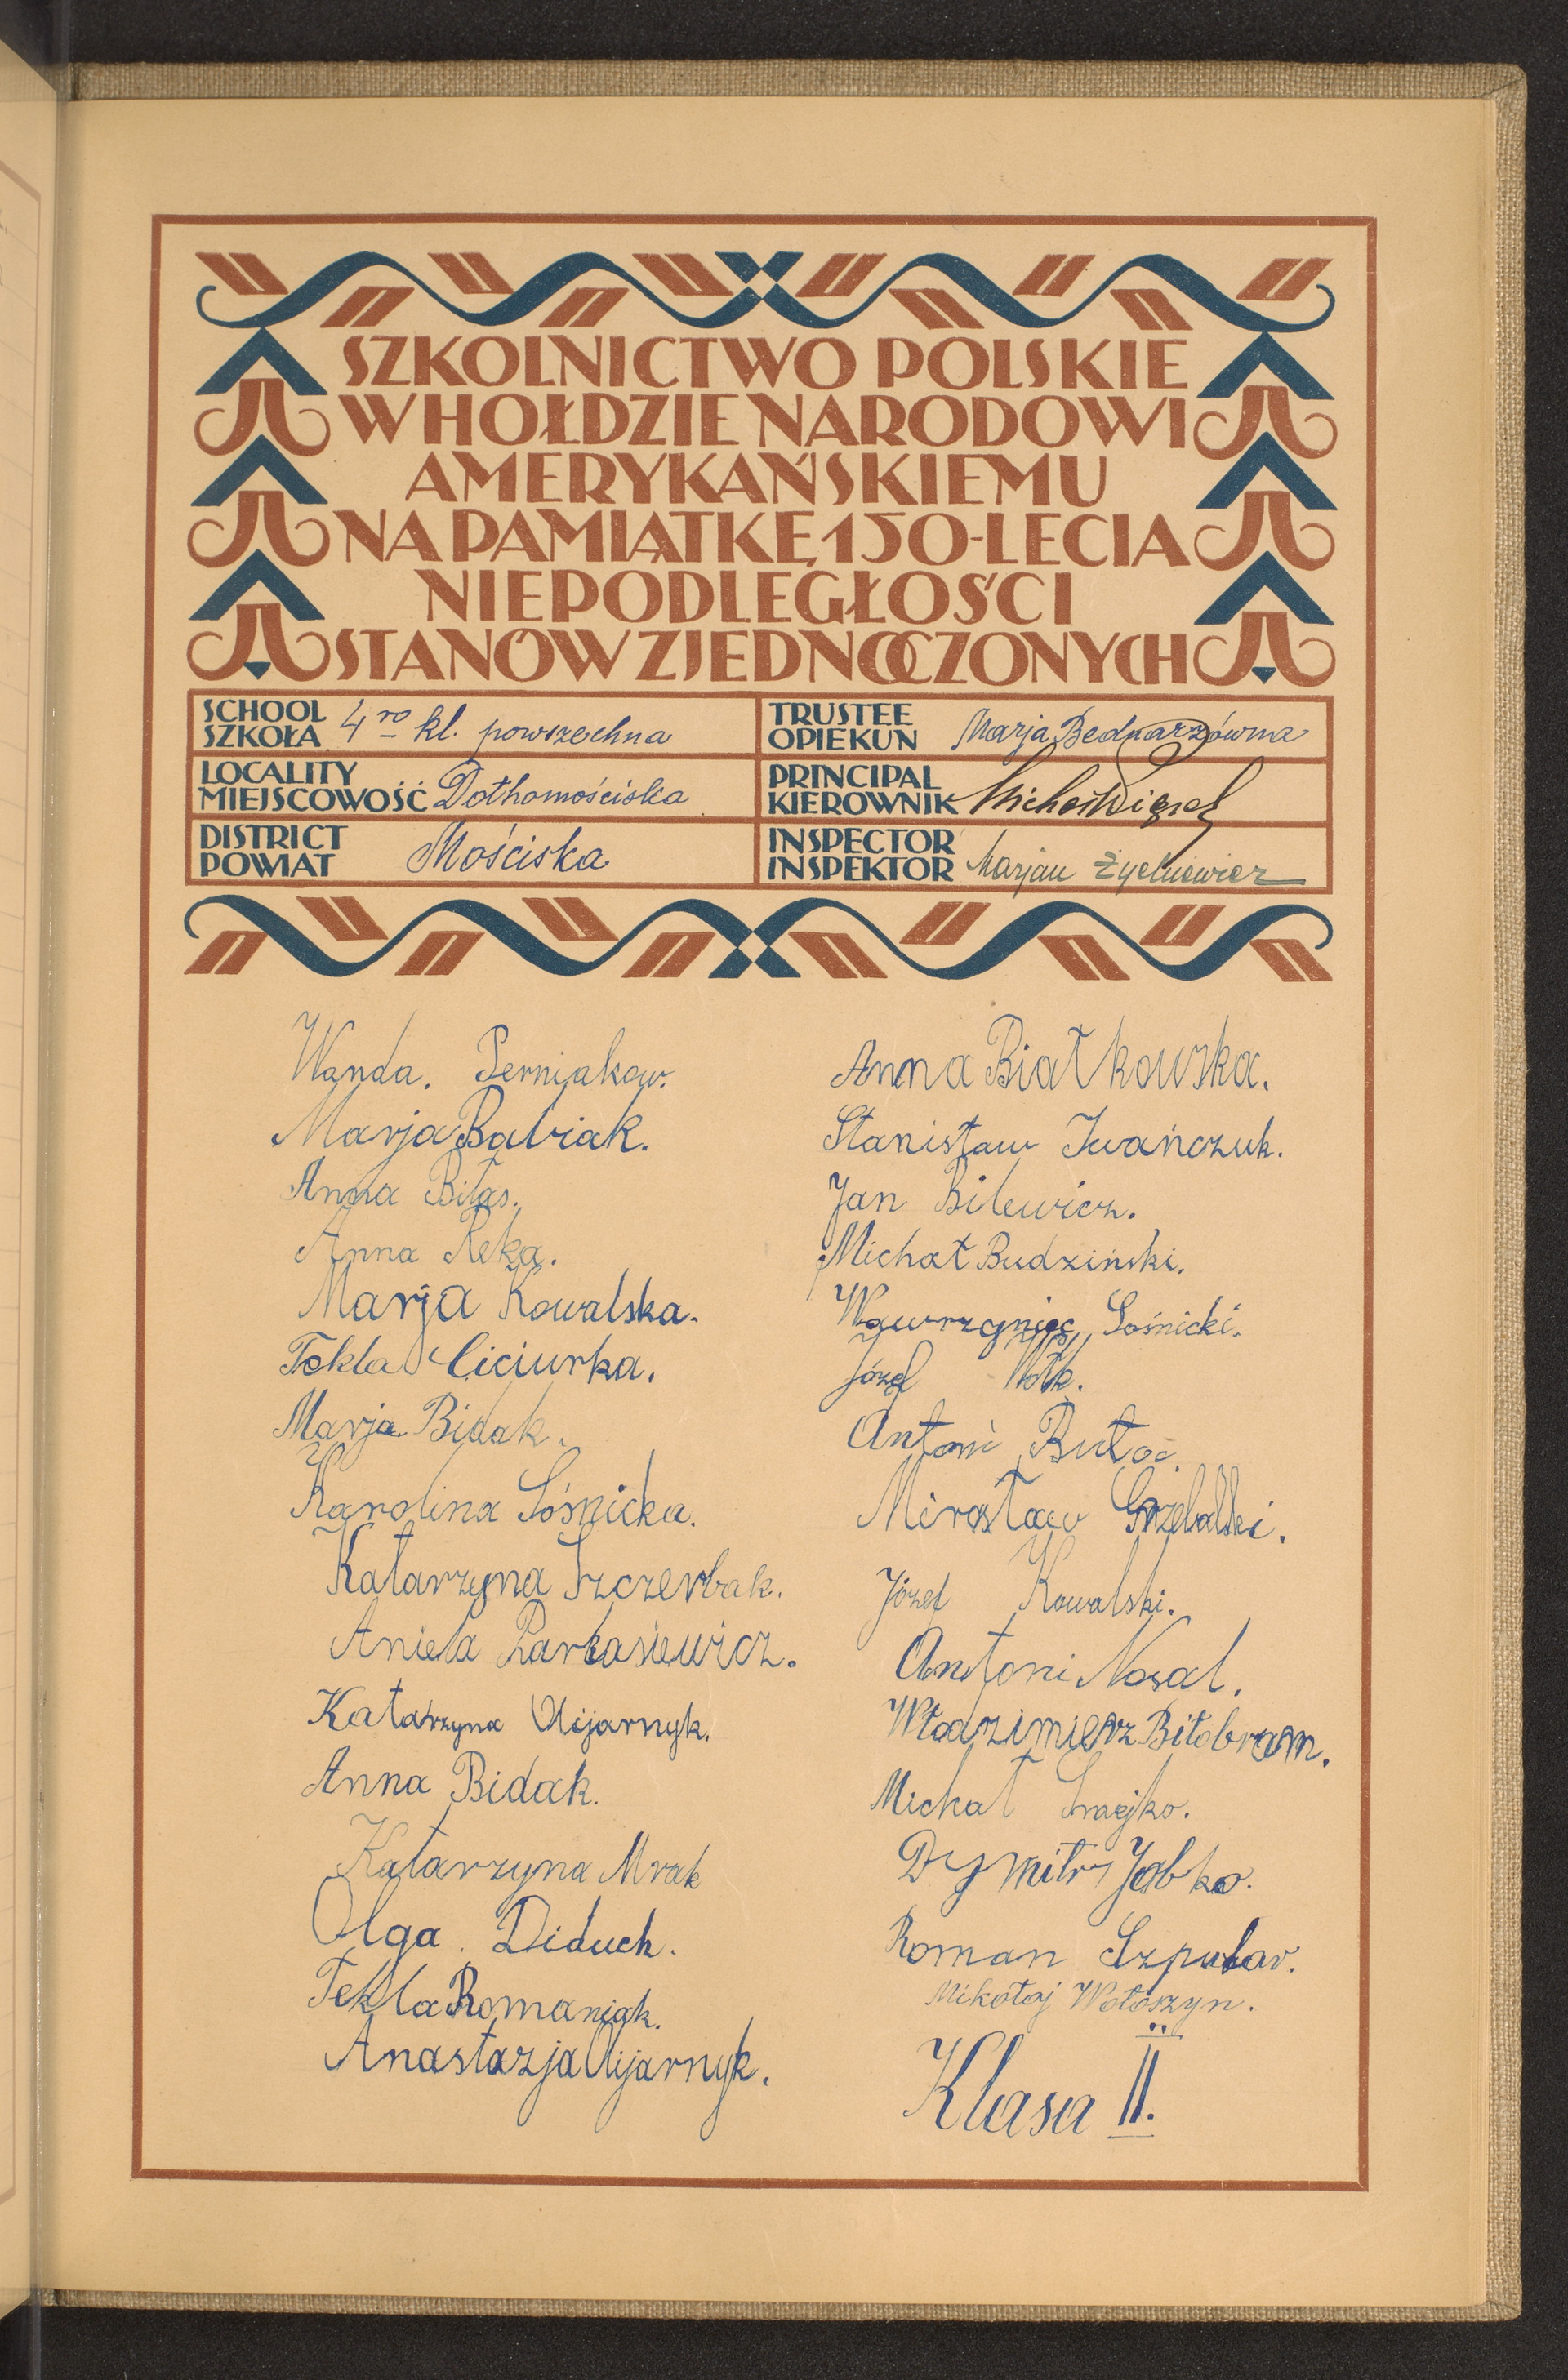 SZKOLNICTWO POLSKIE
W HOŁDZIE NARODOWI
AMERYKAŃSKIEMU
NA PAMIĄTKĘ 150-LECIA
NIEPODLEGŁOŚCI
STANÓW ZJEDNOCZONYCH
SCHOOL
SZKOŁA 4ro kl. powszechna
LOCALITY
MIEJSCOWOŚĆ Dołhomościska
DISTRICT
POWIAT Mościska
TRUSTEE
OPIEKUN Marja Bednarzówna
PRINCIPAL
KIEROWNIK Michał
INSPECTOR
INSPEKTOR Marjan
Wanda. Perniakow.
Marja Babiak.
Anna Biłas.
Anna Reka.
Marja Kowalska.
Tekla Ciciurka.
Marja Bidak.
Karolina Sośnicka.
Katarzyna Szczerbak.
Aniela
Katarzyna
Anna Bidak.
Katarzyna Mrak
Olga. Diduch.
Tekla Romaniak.
Anastazja
Anna Białkowska.
Stanisław Iwańczuk.
Jan Bilewicz.
Michał Budziński.
Wawrzyniec Sośnicki.
Józef Wołk.
Antoni
Mirosław Grzebalski.
Józef Kowalski.
Antoni Nosal.
Włodzimierz Biłobram.
Michał
Dymitr Jabko.
Roman Szpular.
Mikołaj Wołoszyn.
Klasa II.